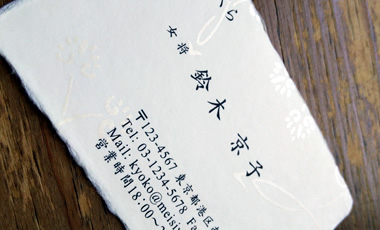 ら
女将
鈴木 京子
〒123-4567 東京都港区
Tel: 03-1234-5678 Fa
Mail: kyoko@meisi
営業時間18:00~2